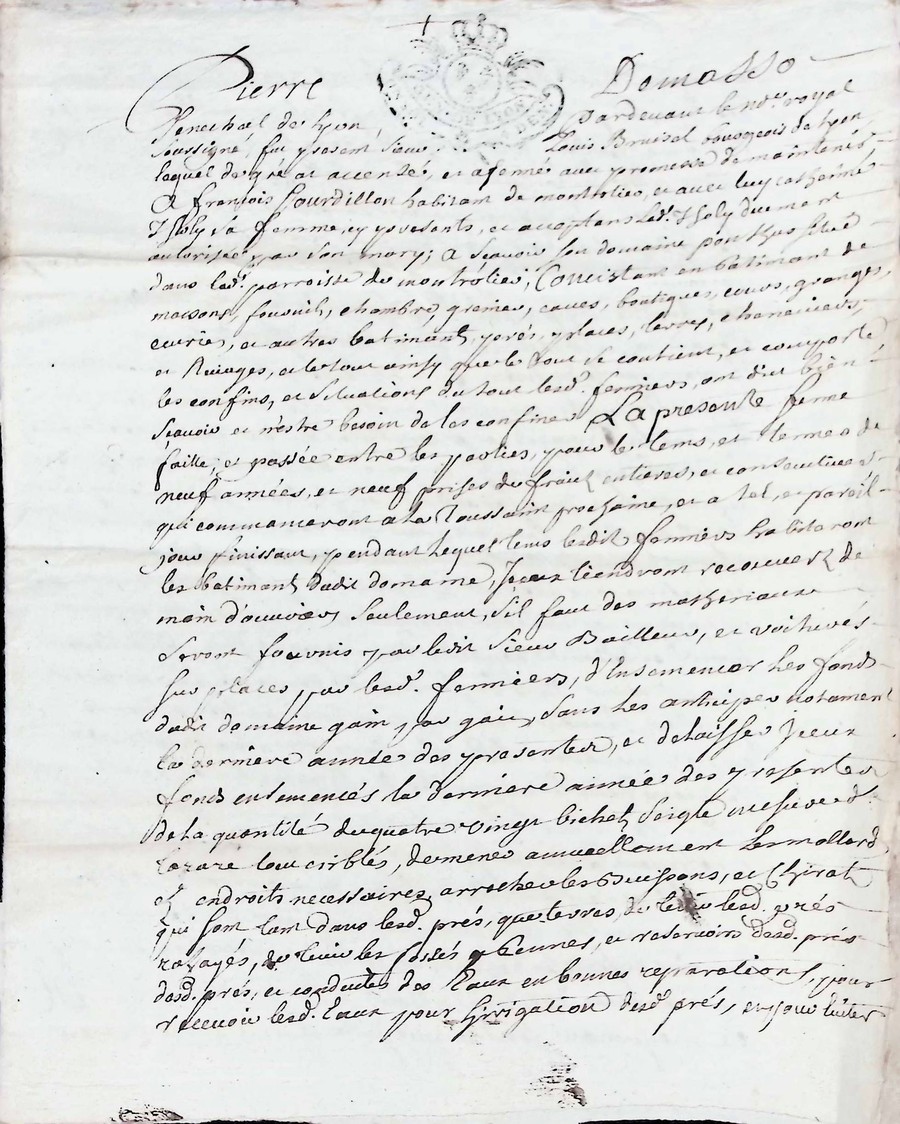 Pierre Domasso
Pardevant le no.re royal
Senechal de Lyon,
soussigné, fut present sieur Louis Bruisel bourgeois de Lyon,
lequel de gré at accensé, et afermé avec promesse de maintenir,
A françois Gourdillon habitant de montrotier, et avec luy catherine
Tholy sa femme, cy presents, et acceptans led. Tholy duement
autorisée par son mary; A sçavoir son domaine situé
dans lad. parroisse de montrotier, Consistant en bâtiment de
maisons, fournil, chambre, greniers, caves, boutiques, cours, granges,
ecurie, et autres batiment, prés, places, terres, chenevieres,
et Rivages, et le tout ainsy que le tout se contient, et comporte
les confins, et situations du tout lesd. fermiers, ont dit bien
sçavoir et n'estre besoin de les confiner La presente ferme
faitte, et passée entre les parties, pour le tems, et termes de
neuf années, et neuf prises de fruit entieres, et consecutives
qui commanceront a la Toussaint prochaine, et a tel, et pareil
jour finissant, pendant lequel tems lesdit fermiers habiteront
les batiment dudit domaine, Iceux tiendront recouvert de
main d'ouvrier seulement, s'il faut des matheriaux
seront fournis par ledit sieur Bailleur, et voiturés
sur places par lesd. fermiers, d'Ensemencer les fonds
dudit domaine gain par gain, sans les anthiper notament
la dernière année des presentes, et delaisser Iceux
fonds ensemencés la dernière année des presentes
de la quantité de quatre vingt bichet seigle mesure de
tarare tout criblés, demener annuellement les mollard
et endroits necessaires, arracher les Buissons, et Chirat
qui sont tant dans lesd. prés, que terres, de tenir lesd. prés
razayés, de tenir les fossés et reservoirs desd. prés
desd. prés, et conduites des Eaux en bonnes reparations, pour
recevoir lesd. Eaux pour l'irrigation desd. prés, en pour eviter